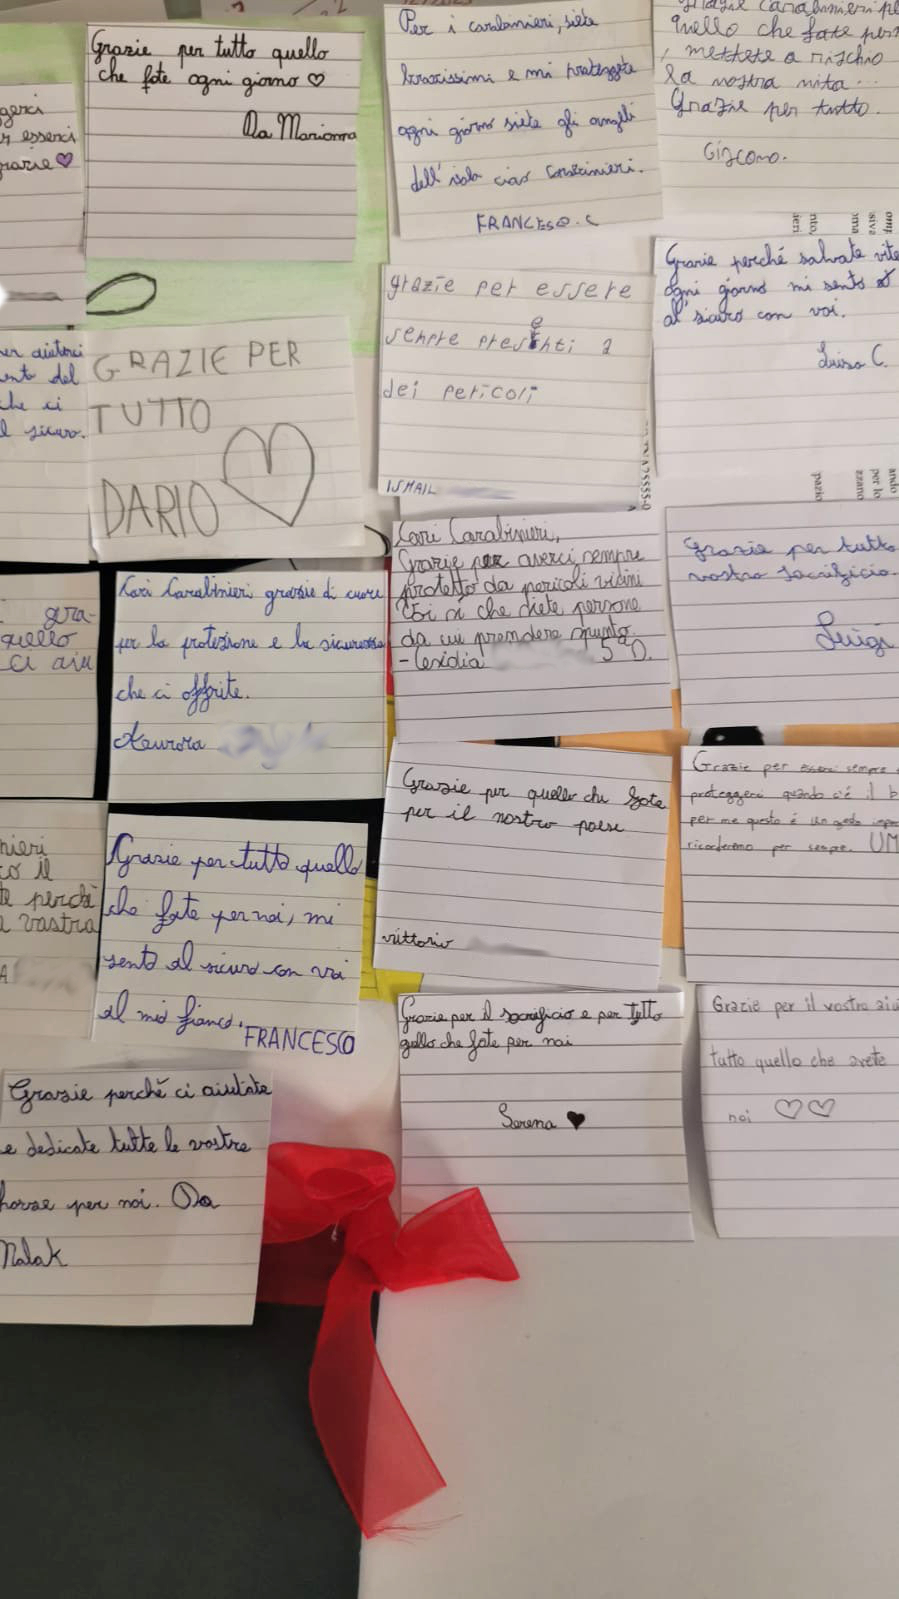 Grazie per tutto quello
che fate ogni giorno ♡
Da Marianna
Per i carabinieri, siete
bravissimi e mi proteggete
ogni giorno siete gli angeli
dell'isola ciao carabinieri.
FRANCESCO. C
Grazie Carabinieri pe
quello che fate per
, mettete a rischio
la vostra vita...
Grazie per tutto.
Giacomo.
ggerci
r esserci
grazie
er aiutarci
ento del
che ci
l sicuro.
GRAZIE PER
TUTTO
DARIO
grazie per essere
sempre presenti a
dei pericoli
ISMAIL
Grazie perché salvate vite
ogni giorno mi sento
al sicuro con voi.
Luisa C.
Cari Carabinieri grazie di cuore
per la protezione e la sicurezza
che ci offrite.
Aurora
Cari Carabinieri,
Grazie per averci sempre
protetto da pericoli vicini
Voi si che siete persone
da cui prendere spunto.
- Cesidia 5 D.
Grazie per tutto
vostro sacrificio.
Luigi
gra-
quello
ci aiu
nieri
co il
te perché
a vostra
Grazie per tutto quello
che fate per noi, mi
sento al sicuro con voi
al mio fianco.
FRANCESCO
Grazie per quello che fate
per il nostro paese
vittorio
Grazie per esserci sempre
proteggerci quando c'è il b
per me questo è un gesto impo
ricorderemo per sempre. UM
Grazie perché ci aiutate
e dedicate tutte le vostre
forze per noi. Da
Malak
Grazie per il sacrificio e per tutto
qello che fate per noi
Serena ♥
Grazie per il vostro aiu
tutto quello che avete
noi ♡♡